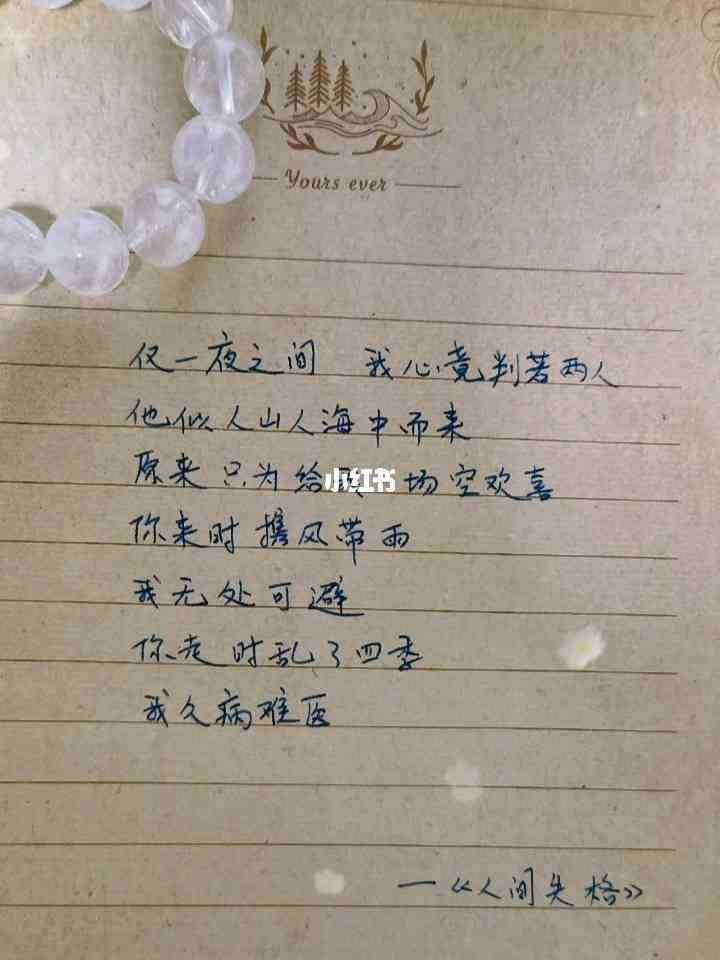 Yours ever
仅一夜之间 我心竟判若两人
他似人山人海中而来
原来只为给我 场空欢喜
小红书
你来时携风带雨
我无处可避
你走时乱了四季
我久病难医
一《人间失格》